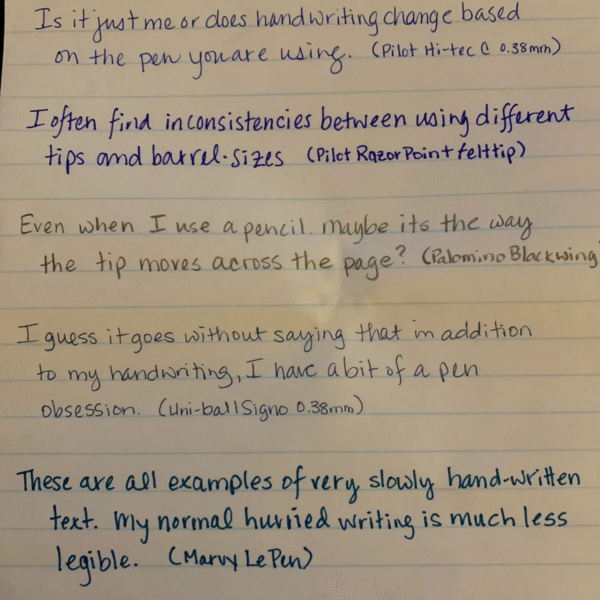 Is it just me or does handwriting change based
on the pen you are using. (Pilot Hi-tec C 0.38mm)
I often find inconsistencies between using different
tips and barrel-sizes (Pilot Razor Point felt tip)
Even when I use a pencil. maybe its the way
the tip moves across the page? (Palomino Blackwing)
I guess it goes without saying that in addition
to my handwriting, I have a bit of a pen
obsession. (Uni-ball Signo 0.38mm)
These are all examples of very slowly hand-written
text. My normal hurried writing is much less
legible. (Marvy Le Pen)